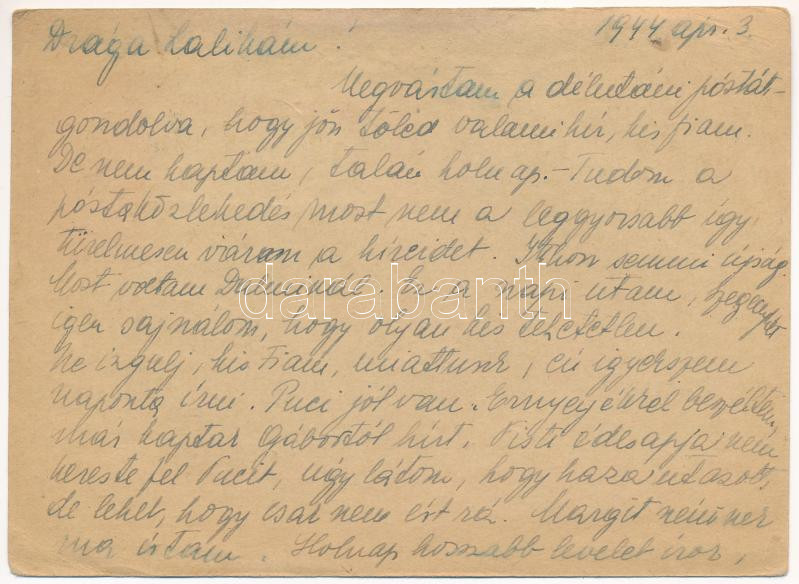 1944 ápr. 3.
Drága Lalikám!
Megvártam a délutáni póstát
gondolva, hogy jön tőled valami hír, kis fiam.
De nem kaptam, talán holnap. – Tudom a
póstaközlekedés most nem a leggyorsabb így
türelmesen várom a híreidet. Itthon semmi újság.
Most voltam Dnáminál. Ez a napi utam, szegényt
igen sajnálom, hogy olyan kis tehetetlen.
Ne izgulj, kis Fiam, miattunk, én igyekszem
naponta írni. Puci jól van. Ernyeyékkel beszéltem,
már kaptak Gábortól hírt. Pisti édesapja nem
kereste fel Pucit, úgy látom, hogy haza utazott,
de lehet, hogy csak nem ért rá. Margit néninek
ma írtam. Holnap hosszabb levelet írok,
darabanth